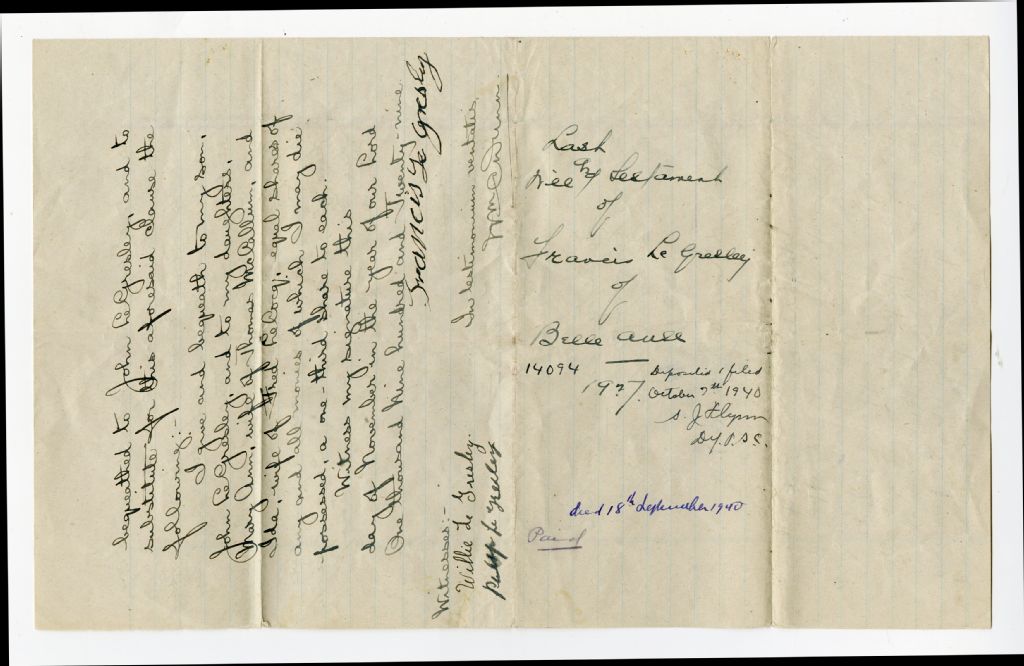 bequeathed to John Le Gresley, and to
substitute for this aforesaid clause the
following:-
I give and bequeath to my son,
John Le Gresley, and to my daughters,
Mary Ann, wife of Thomas McCallum, and
Ida, wife of Fred LeCocq, equal shares of
any and all monies of which I may die
possessed, a one-third share to each.
Witness my signature this
day of November in the year of our Lord
One thousand nine hundred and Twenty-nine
Francis Le Gresley
Witnesses:-
Willie Le Gresley.
Philip Le Gresley
In testimonium veritatis,
Last
Will & Testament
of
Francis Le Gresley
of
Belle Anse
14094
Deposited & filed
October 7th 1940
S. J. Flynn
Dy. P. S. C.
1937.
died 18th September 1940
Paid